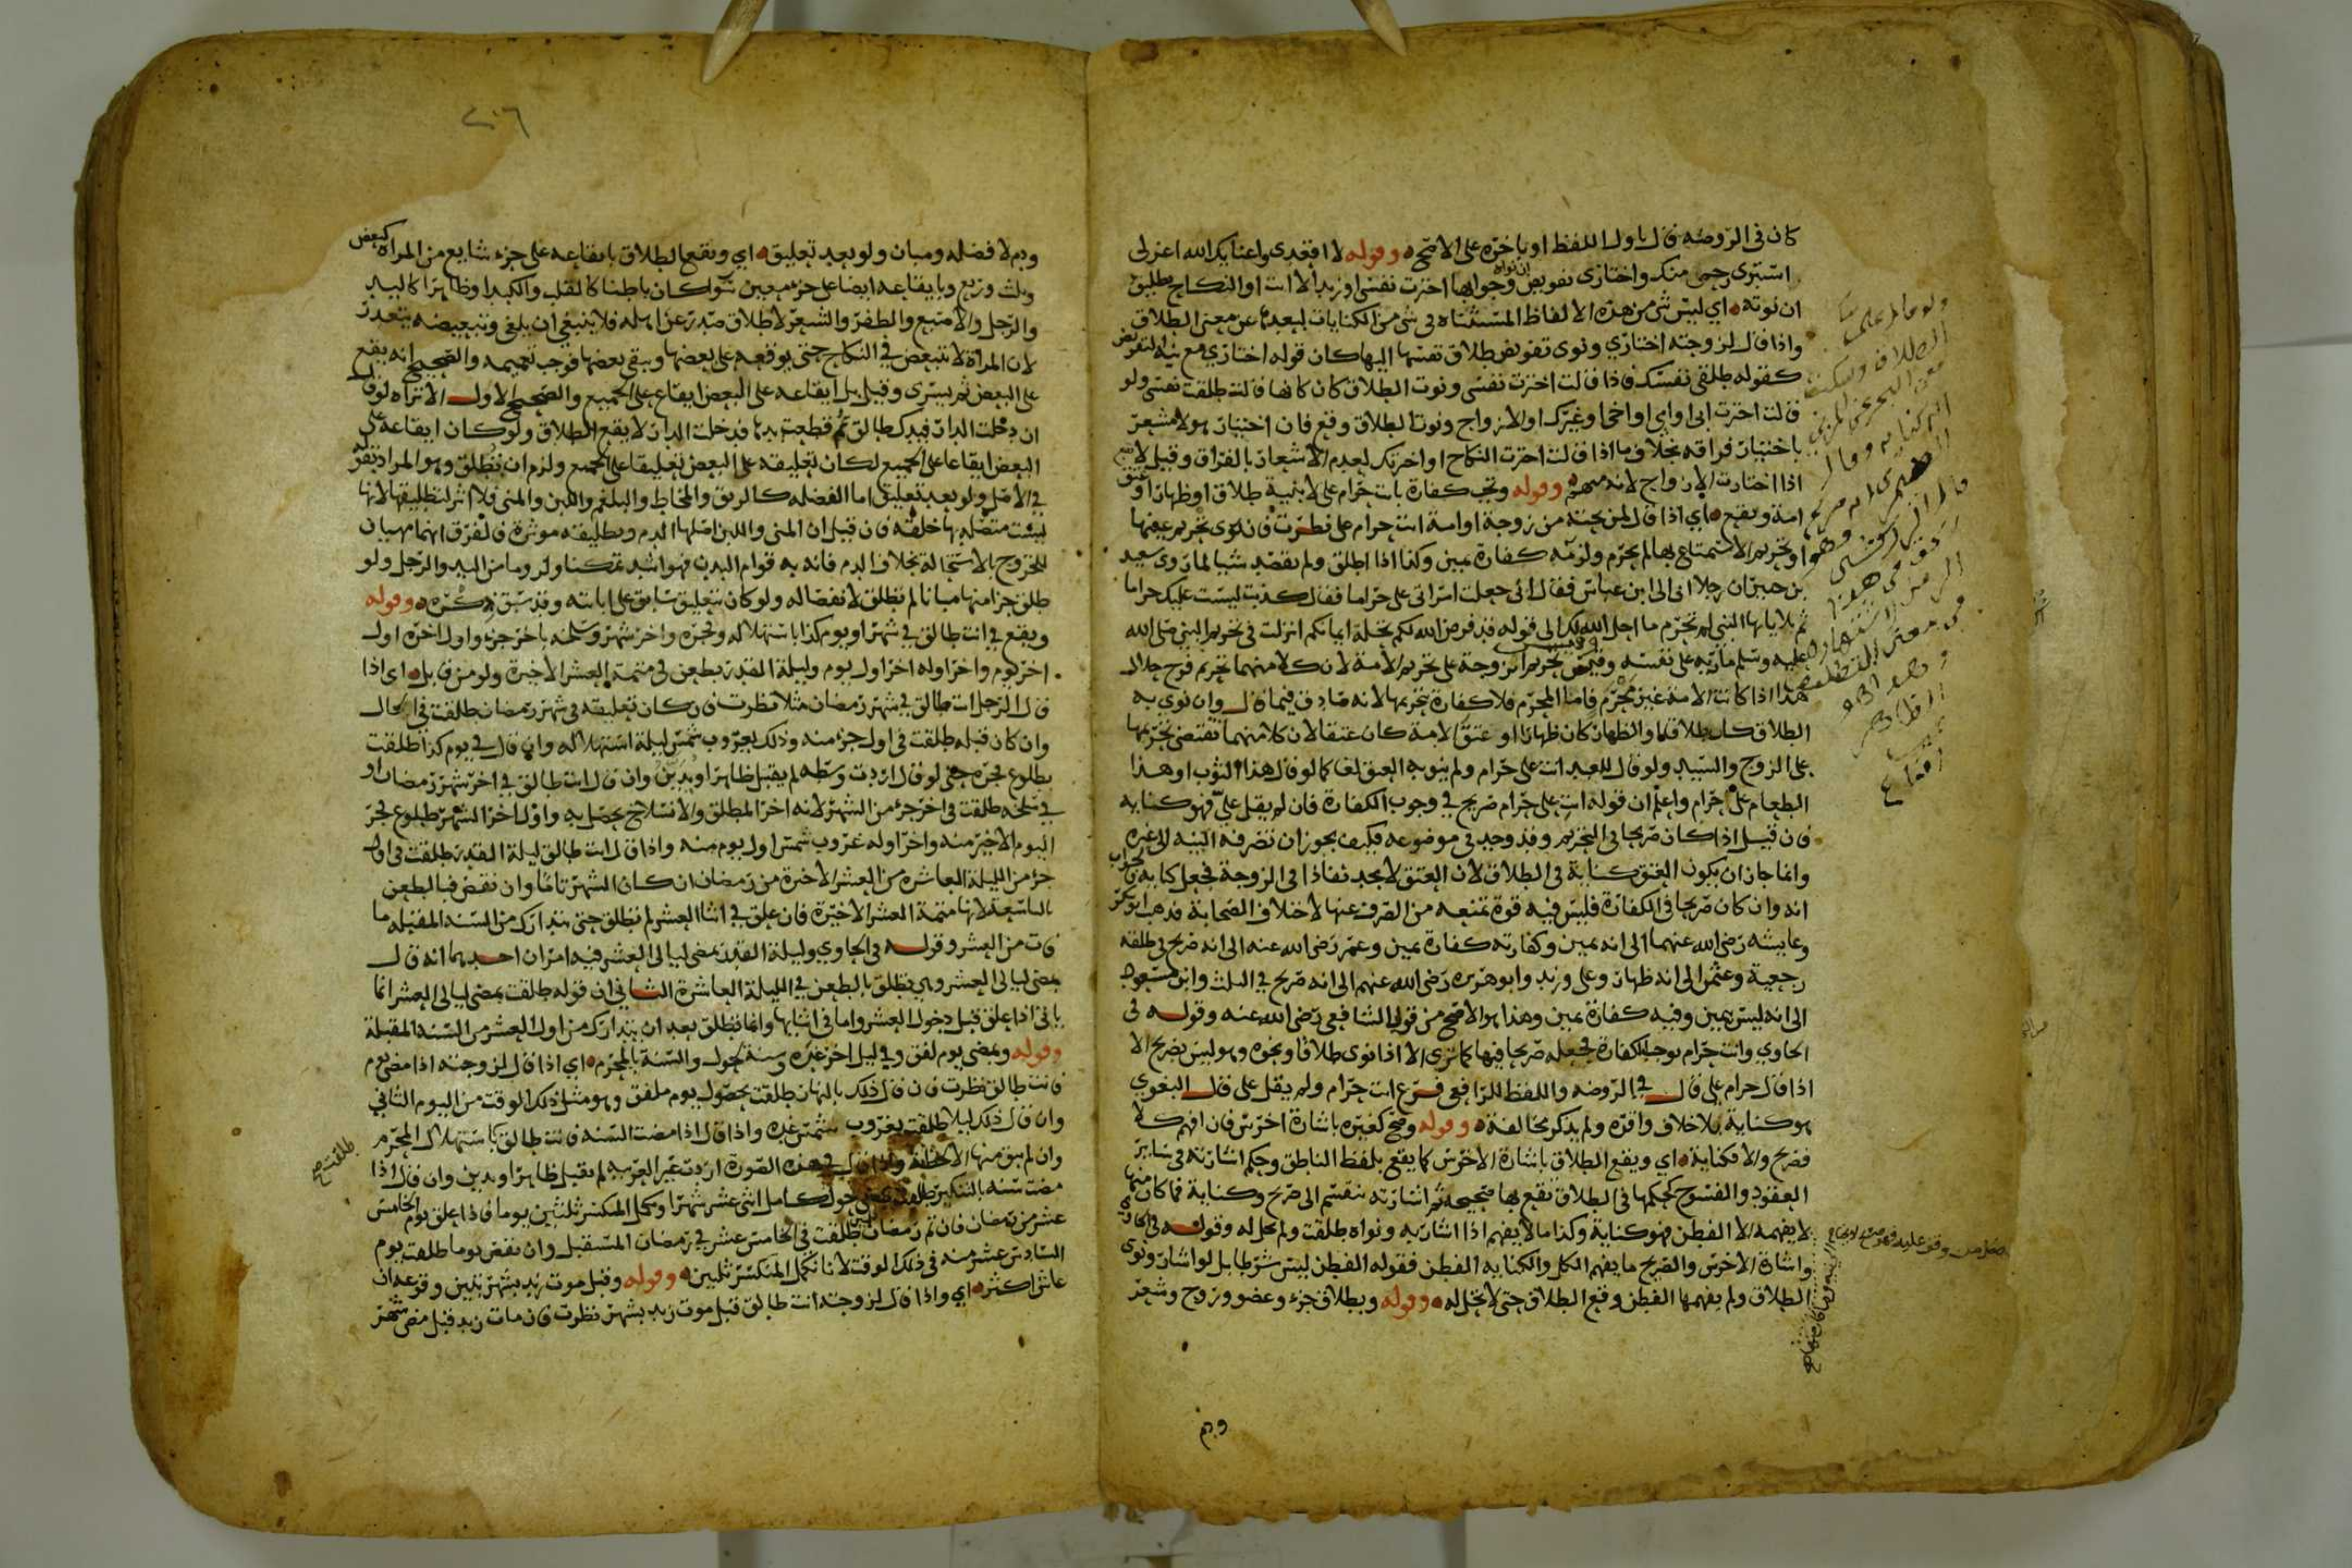 كان في الروضه قال باول اللفظ او باخره على الاصح وقوله لا اقعدى واغناك الله اعزلى
استبرى رحمك منك واختارى بتفويض وجوابها ان نواه اخترت نفسى او زيدا لا انت او النكاح بطليق
ان نوته اي ليس شى من هذه الالفاظ المستثناه فى شى من الكنايات لبعدها عن معنى الطلاق
واذا قال لزوجته اختاري ونوى تفويض طلاق نفسها اليها كان قوله اختاري مع نية التفويض
كقوله طلقى نفسك فاذا قالت اخترت نفسى ونوت الطلاق كان كما لو قالت طلقت نفسى ولو
قالت اخترت ابى او امي او اخى او غيرك او الازواج ونوت الطلاق وقع فان اختيار هولا مشعر
باختيار فراقه بخلاف ما اذا قالت اخترت النكاح او اخترتك لعدم الاشعار بالفراق وقيل لا يقع
اذا اختارت الازواج لانه منهم وقوله وتجب كفارة بانت حرام على لا بنية طلاق او ظهار او عتق
امة ويقع اي اذا قال لمن يحته من زوجة او امة انت حرام على نظرت فان نوى تحريم عينها
او تحريم الاستمتاع بها لم تحرم ولزمه كفارة يمين وكذا اذا اطلق ولم يقصد شيا لما روى سعيد
بن جبير ان رجلا اتى الى ابن عباس فقال انى جعلت امراتى على حراما فقال كذبت ليست عليك حراما
ثم تلا يايها النبى لم تحرم ما احل الله لك الى قوله قد فرض الله لكم تحلة ايمانكم انزلت فى تحريم النبى صلى الله
عليه وسلم مارية على نفسه وقيس تحريم الزوجة على تحريم الامة لان كلا منهما تحريم فرج حلال
هذا اذا كانت الامة غير محرم فاما المحرم فلا كفارة بتحريمها لانه صادق فيما قال وان نوى به
الطلاق كان طلاقا او الظهار كان ظهارا او عتق الامة كان عتقا لان كلا منهما يقتضى تحريمها
على الزوج والسيد ولو قال للعبد انت على حرام ولم ينو به العتق لغا كما لو قال هذا الثوب او هذا
الطعام على حرام واعلم ان قوله انت على حرام صريح في وجوب الكفارة فان لم يقل علي فهو كنايه
فان قيل اذا كان صريحا فى التحريم وقد وجد فى موضوعه فكيف يجوز ان تصرفه النيه الى غيره
وانما جاز ان يكون العتق كناية فى الطلاق لان العتق لا يجد نفاذا فى الزوجة فجعل كنايه فالجواب
انه وان كان صريحا فى الكفارة فليس فيه قوة تمنعه من الصرف عنها لاختلاف الصحابة فذهب ابو بكر
وعايشه رضى الله عنهما الى انه يمين وكفارته كفارة يمين وعمر رضى الله عنه الى انه صريح فى طلقه
رجعية وعثمن الى انه ظهار وعلى وزيد وابو هريره رضى الله عنهم الى انه صريح فى الثلث وابن مسعود
الى انه ليس بيمين وفيه كفارة يمين وهذا هو الاصح من قولى الشافعى رضى الله عنه وقوله فى
الحاوي وانت حرام يوجب الكفارة فجعله صريحا فيها كما ترى الا اذا نوى طلاقا ونحوه وهو ليس بصريح الا
اذا قال حرام على قال في الروضه واللفظ للرافعى فرع انت حرام ولم يقل على قال البغوي
هو كناية بلا خلاف واقره ولم يذكر مخالفة وقوله وصح كغيره باشارة اخرس فان افهم كلا
فصريح والا فكناية اي ويقع الطلاق باشارة الاخرس كما يقع بلفظ الناطق وحكم اشارته فى ساير
العقود والفسوخ كحكمها فى الطلاق تقع بها صحيحة ثم اشارته تنقسم الى صريح وكناية فما كان منها
لا يفهمه الا الفطن فهو كناية وكذا ما لا يفهم اذا اشار به ونواه طلقت ولم تحل له وقوله فى الحاوي
واشارة الاخرس والصريح ما يفهم الكل والكنايه الفطن فقوله الفطن ليس شرطا بل لو اشار ونوى
الطلاق ولم يفهمها الفطن وقع الطلاق حتى لا تحل له وقوله وبطلاق جزء وعضو وروح وشعر
ودم
٢٠٦
ودم لا فضله ومبان ولو بعد تعليق اي ويقع الطلاق بايقاعه على جزء شايع من المراه كبعض
وثلث وربع وبايقاعه ايضا على جزء معين سواكان باطنا كالقلب والكبد او ظاهرا كاليد
والرجل والاصبع والظفر والشعر لا طلاق صدر عن اهله فلا ينبغى ان يلغى وتبعيضه يتعذر
لان المراة لا تتبعض في النكاح حتى يوقعه على بعضها ويبقى بعضها فوجب تعميمه والصحيح انه يقع
على البعض ثم يسرى وقيل بل ايقاعه على البعض ايقاع على الجميع والصحيح الاول الا تراه لو قال
ان دخلت الدار فيدك طالق ثم قطعت يدها فدخلت الدار لا يقع الطلاق ولو كان ايقاعه على
البعض ايقاعا على الجميع لكان تعليقه على البعض تعليقا على الجميع ولزم ان تطلق وهو المراد بقوله
في الاصل ولو بعد تعليق اما الفضله كالريق والمخاط والبلغم واللبن والمنى فلا اثر لتطليقها لانها
ليست متصلة بها خلقة فان قيل ان المنى واللبن اصلها الدم وتطليقه موثرة فالفرق انهما مهييان
للخروج بالاستحالة بخلاف الدم فانه به قوام البدن فهو اشد تمكنا ولزوما من اليد والرجل ولو
طلق جزا منها مبانا لم تطلق لانفصاله ولو كان بتعليق سابق على ابانته وقد سبق ذكره وقوله
ويقع في انت طالق في شهر او يوم كذا باستهلاله وفجره واخر شهر وسلخه باخر جزء واول اخره اول
اخر يوم واخر اوله اخر اول يوم وليلة القدر بطعن فى متمة العشر الاخيرة ولو من قابل اى اذا
قال الرجل انت طالق في شهر رمضان مثلا نظرت فان كان تعليقه فى شهر رمضان طلقت فى الحال
وان كان قبله طلقت فى اول جزء منه وذلك بغروب شمس ليلة استهلاله وان قال في يوم كذا طلقت
بطلوع فجره حتى لو قال اردت وسطه لم يقبل ظاهرا ويدين وان قال انت طالق في اخر شهر رمضان او
في سلخه طلقت فى اخر جزء من الشهر لانه اخر المطلق والانسلاخ يحصل به واول اخر الشهر طلوع فجر
اليوم الاخير منه واخر اوله غروب شمس اول يوم منه واذا قال انت طالق ليلة القدر طلقت فى اول
جزء من الليلة العاشره من العشر الاخيرة من رمضان ان كان الشهر تاما وان نقص فبالطعن
بالتاسعة لانها متمة العشر الاخيرة فان علق في اثنا العشر لم تطلق حتى يتدارك من السنه المقبله ما
فات من العشر وقوله فى الحاوي وليلة القدر بمضى ليالى العشر فيه امران احدهما انه قال
بمضى ليالى العشر وهى تطلق بالطعن في الليلة العاشرة الثانى ان قوله طلقت بمضى ليالى العشر انما
ياتى اذا علق قبل دخول العشر واما فى اثنايها وانما تطلق بعد ان يتدارك من اول العشر من السنه المقبلة
وقوله وبمضى يوم لفق وفي ليل اخر غيره وسنة بحول والسنة بالمحرم اي اذا قال لزوجته اذا مضى يوم
فانت طالق نظرت فان قال ذلك بالنهار طلقت بحصول يوم ملفق وهو مثل ذلك الوقت من اليوم الثانى
وان قال ذلك ليلا طلقت بغروب شمس غده واذا قال اذا مضت السنه فانت طالق باستهلال المحرم
وان لم يبق منها الا لحظة واذا قال في هذه الصورة اردت غير العربيه لم يقبل ظاهرا ويدين وان قال اذا
مضت سنه بالتنكير بمضى حول كامل اثنى عشر شهرا ويكمل المنكسر ثلثين يوما فاذا علق يوم الخامس
عشر من رمضان فان تم رمضان طلقت فى الخامس عشر في رمضان المستقبل وان نقص يوما طلقت يوم
السادس عشر منه فى ذلك الوقت لانا نكمل المنكسر ثلثين وقوله وقبل موت زيد بشهر تبين وقوعه ان
عاش اكثر اي واذا قال لزوجته انت طالق قبل موت زيد بشهر نظرت فان مات زيد قبل مضى شهر
طلقت صح